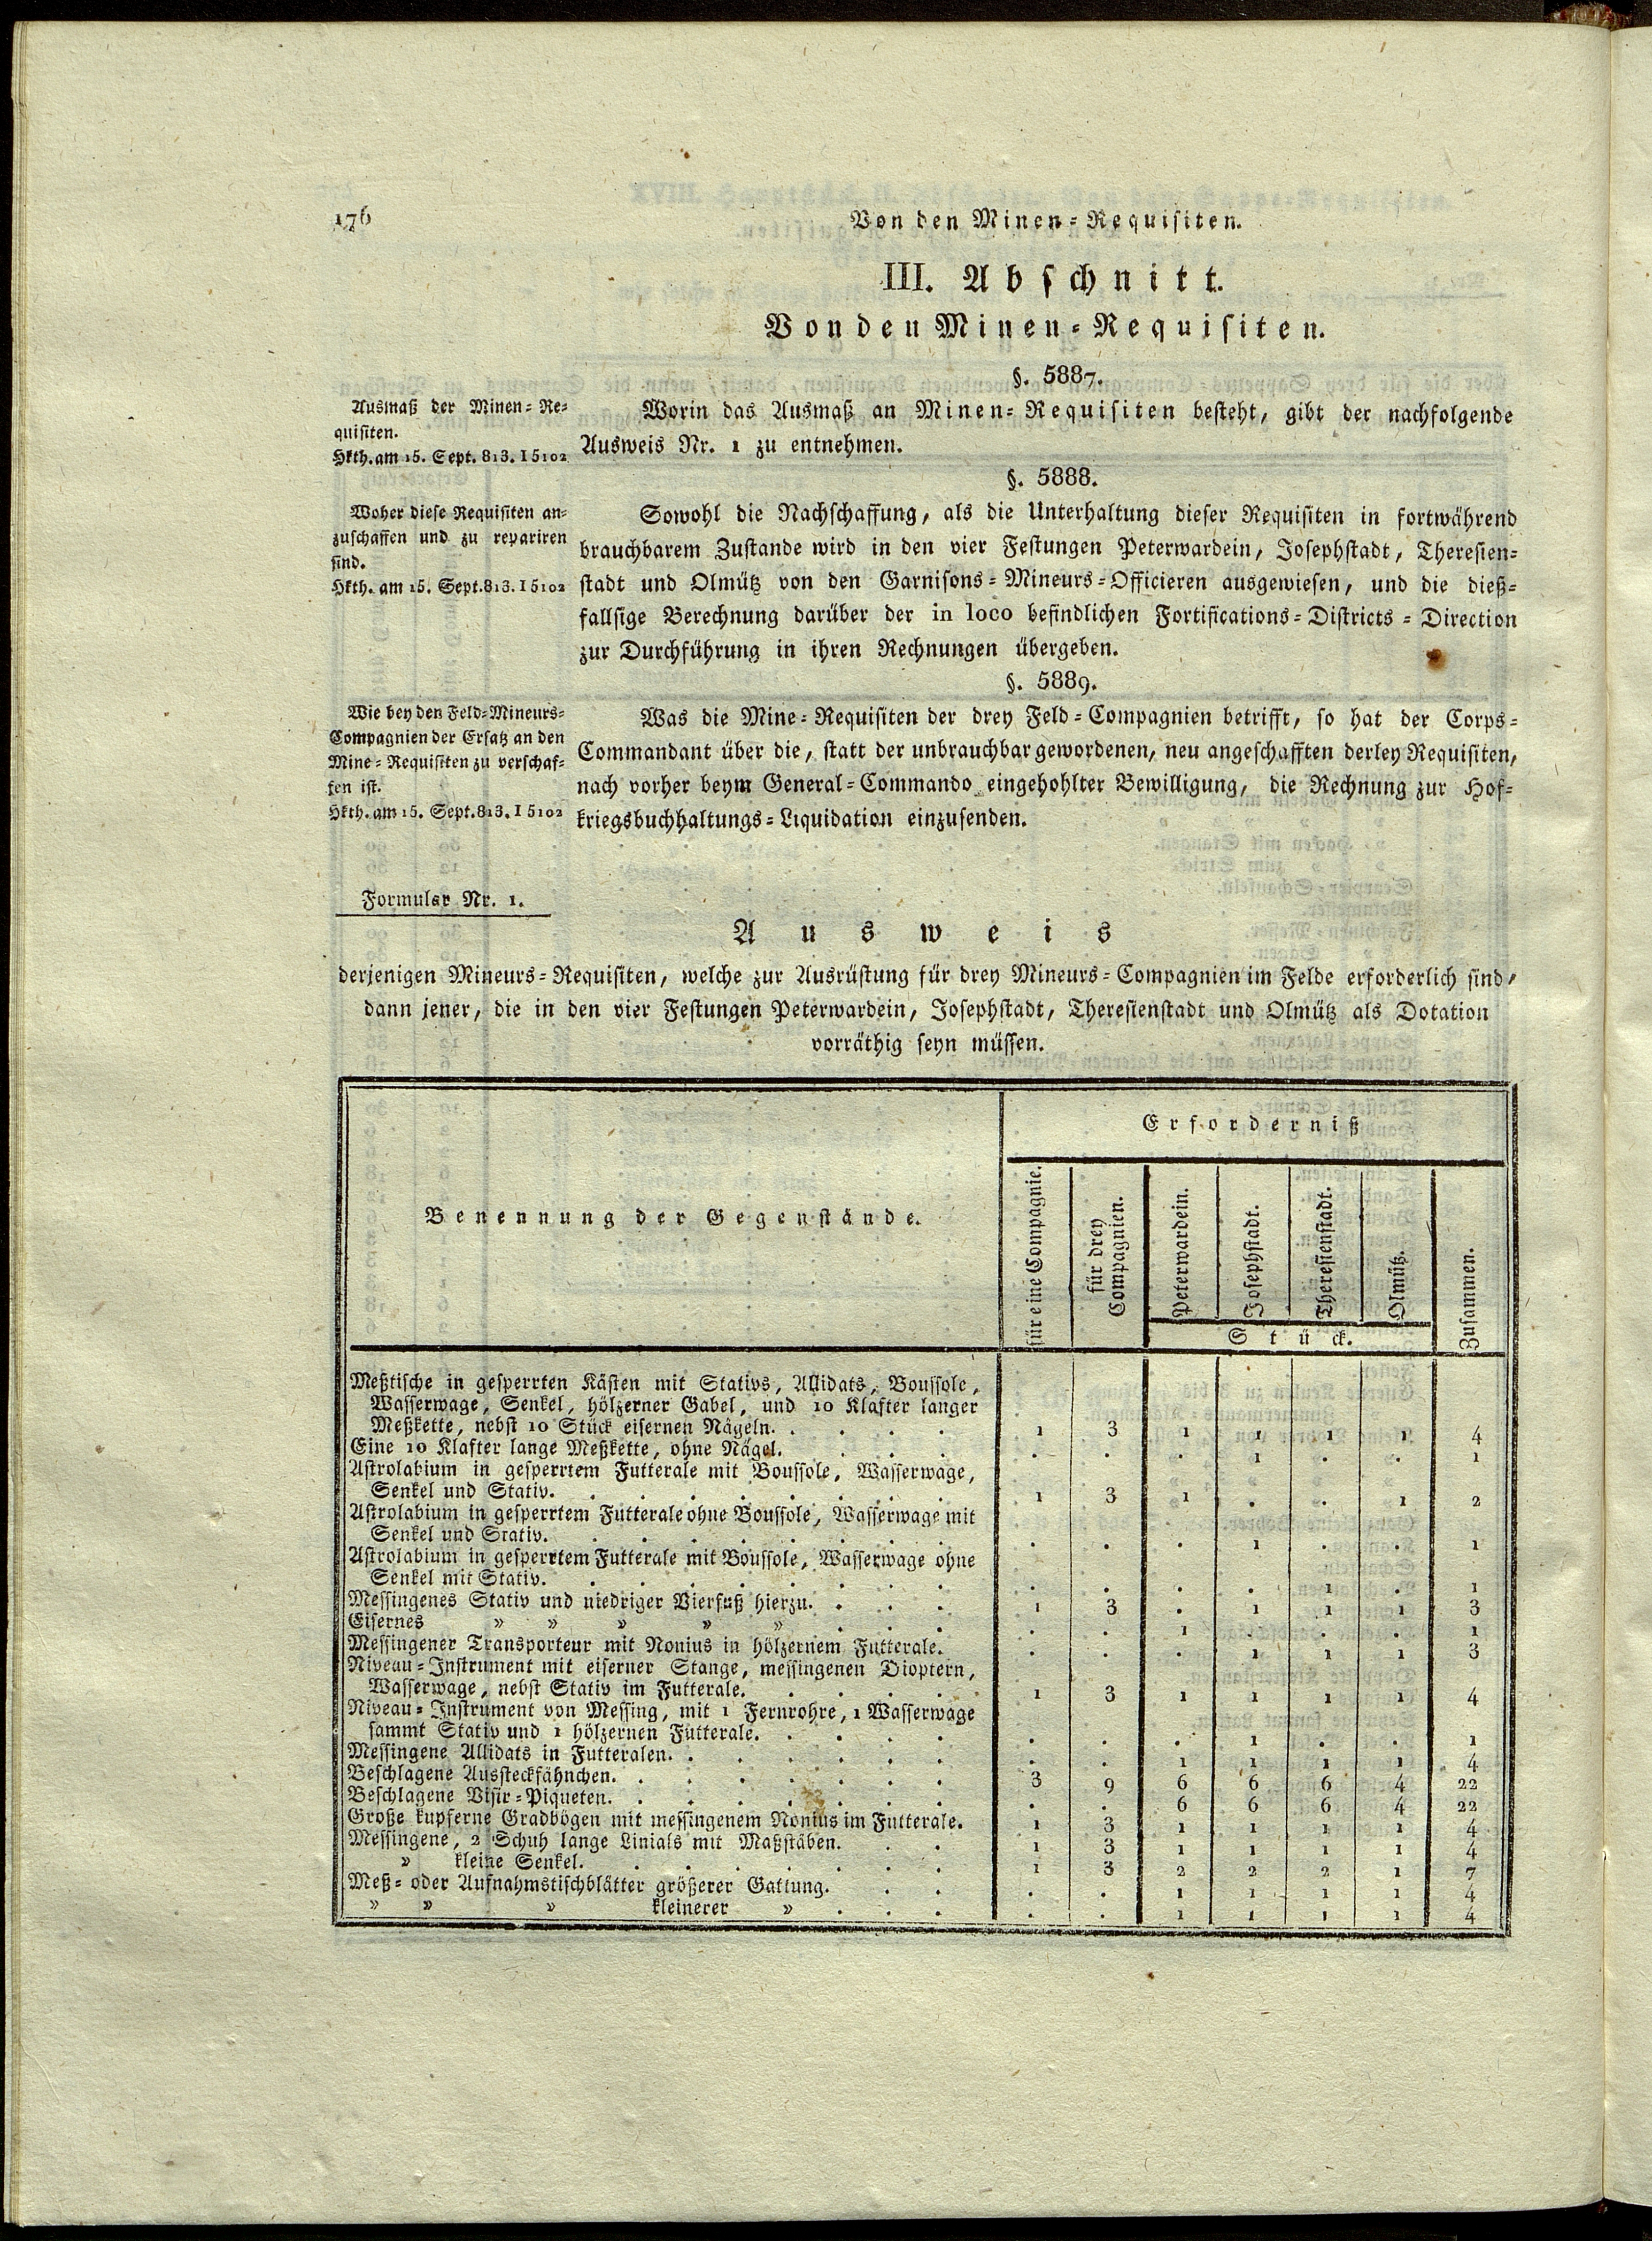 176
Von den Minen-Requisiten.
III. Abschnitt.
Von den Minen-Requisiten.
§. 5887.
Ausmaß der Minen-Re-
quisiten.
Hkth. am 15. Sept. 813. I 5102
Worin das Ausmaß an Minen-Requisiten besteht, gibt der nachfolgende
Ausweis Nr. 1 zu entnehmen.
§. 5888.
Woher diese Requisiten an-
zuschaffen und zu repariren
sind.
Hkth. am 15. Sept. 813. I 5102
Sowohl die Nachschaffung, als die Unterhaltung dieser Requisiten in fortwährend
brauchbarem Zustande wird in den vier Festungen Peterwardein, Josephstadt, Theresien-
stadt und Olmütz von den Garnisons-Mineurs-Officieren ausgewiesen, und die dieß-
fallsige Berechnung darüber der in loco befindlichen Fortifications-Districts-Direction
zur Durchführung in ihren Rechnungen übergeben.
§. 5889.
Wie bey den Feld-Mineurs-
Compagnien der Ersatz an den
Mine-Requisiten zu verschaf-
fen ist.
Hkth. am 15. Sept. 813. I 5102
Was die Mine-Requisiten der drey Feld-Compagnien betrifft, so hat der Corps-
Commandant über die, statt der unbrauchbar gewordenen, neu angeschafften derley Requisiten,
nach vorher beym General-Commando eingehohlter Bewilligung, die Rechnung zur Hof-
kriegsbuchhaltungs-Liquidation einzusenden.
Formular Nr. 1.
Ausweis
derjenigen Mineurs-Requisiten, welche zur Ausrüstung für drey Mineurs-Compagnien im Felde erforderlich sind,
dann jener, die in den vier Festungen Peterwardein, Josephstadt, Theresienstadt und Olmütz als Dotation
vorräthig seyn müssen.
Benennung der Gegenstände.
Erforderniß
für eine Compagnie.
für drey
Compagnien.
Peterwardein.
Josephstadt.
Theresienstadt.
Olmütz.
Zusammen.
Stück.
Meßtische in gesperrten Kästen mit Stativs, Allidats, Boussole,
Wasserwage, Senkel, hölzerner Gabel, und 10 Klafter langer
Meßkette, nebst 10 Stück eisernen Nägeln. 1 3 1 1 1 1 4
Eine 10 Klafter lange Meßkette, ohne Nägel. . . . 1 . . 1
Astrolabium in gesperrtem Futterale mit Boussole, Wasserwage,
Senkel und Stativ. 1 3 1 . . 1 2
Astrolabium in gesperrtem Futterale ohne Boussole, Wasserwage mit
Senkel und Stativ. . . . 1 . . 1
Astrolabium in gesperrtem Futterale mit Boussole, Wasserwage ohne
Senkel mit Stativ. . . . . 1 . 1
Messingenes Stativ und niedriger Vierfuß hierzu. 1 3 . 1 1 1 3
Eisernes » » » » » . . 1 . . . 1
Messingener Transporteur mit Nonius in hölzernem Futterale. . . . 1 1 1 3
Niveau-Instrument mit eiserner Stange, messingenen Dioptern,
Wasserwage, nebst Stativ im Futterale. 1 3 1 1 1 1 4
Niveau-Instrument von Messing, mit 1 Fernrohre, 1 Wasserwage
sammt Stativ und 1 hölzernen Futterale. . . . 1 . . 1
Messingene Allidats in Futteralen. . . 1 1 1 1 4
Beschlagene Aussteckfähnchen. 3 9 6 6 6 4 22
Beschlagene Visir-Piqueten. . . 6 6 6 4 22
Große kupferne Gradbögen mit messingenem Nonius im Futterale. 1 3 1 1 1 1 4
Messingene, 2 Schuh lange Linials mit Maßstäben. 1 3 1 1 1 1 4
» kleine Senkel. 1 3 2 2 2 1 7
Meß- oder Aufnahmstischblätter größerer Gattung. . . 1 1 1 1 4
» » » kleinerer » . . 1 1 1 1 4